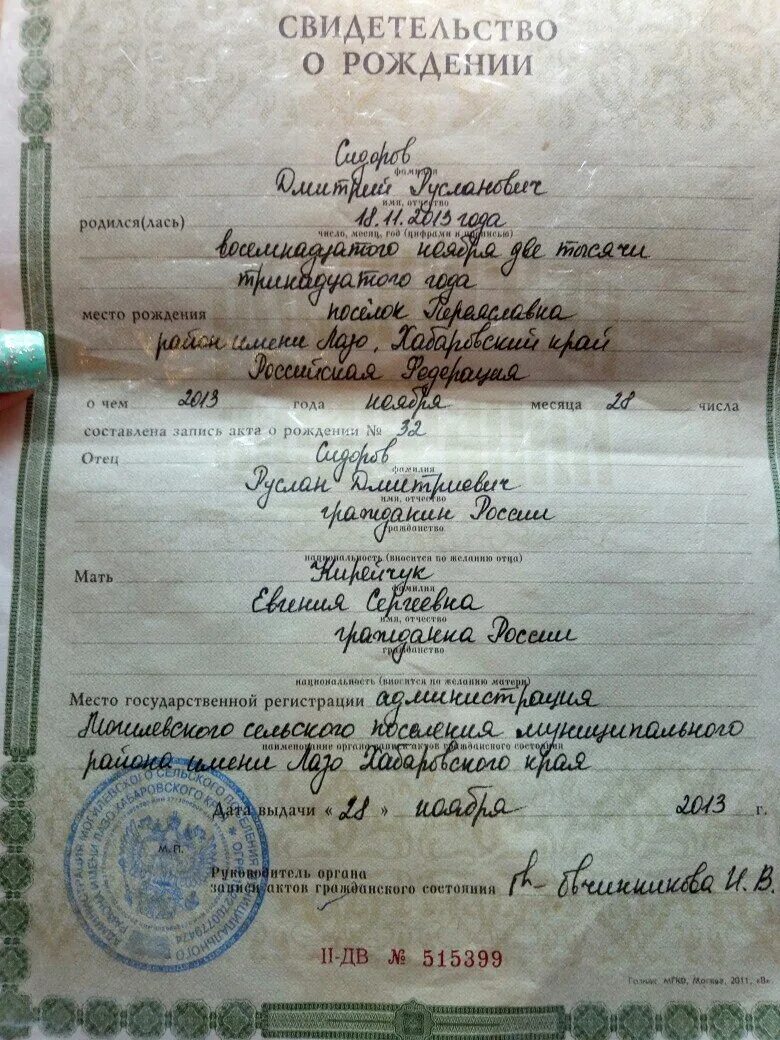 СВИДЕТЕЛЬСТВО
О РОЖДЕНИИ
Сидоров
фамилия
Дмитрий Русланович
имя, отчество
родился(лась) 18.11.2013 года
число, месяц, год (цифрами и прописью)
восемнадцатого ноября две тысячи
тринадцатого года
место рождения посёлок Переяславка
район имени Лазо, Хабаровский край
Российская Федерация
о чем 2013 года ноября месяца 28 числа
составлена запись акта о рождении № 32
Отец Сидоров
фамилия
Руслан Дмитриевич
имя, отчество
гражданин России
гражданство
национальность (вносится по желанию отца)
Мать Кирейчук
фамилия
Евгения Сергеевна
имя, отчество
гражданка России
гражданство
национальность (вносится по желанию матери)
Место государственной регистрации администрация
Могилевского сельского поселения муниципального
наименование органа записи актов гражданского состояния
района имени Лазо Хабаровского края
Дата выдачи « 28 » ноября 2013 г.
М.П.
Руководитель органа
записи актов гражданского состояния Овчинникова И. В.
II-ДВ № 515399
Гознак, МПФ, Москва, 2011, «В».